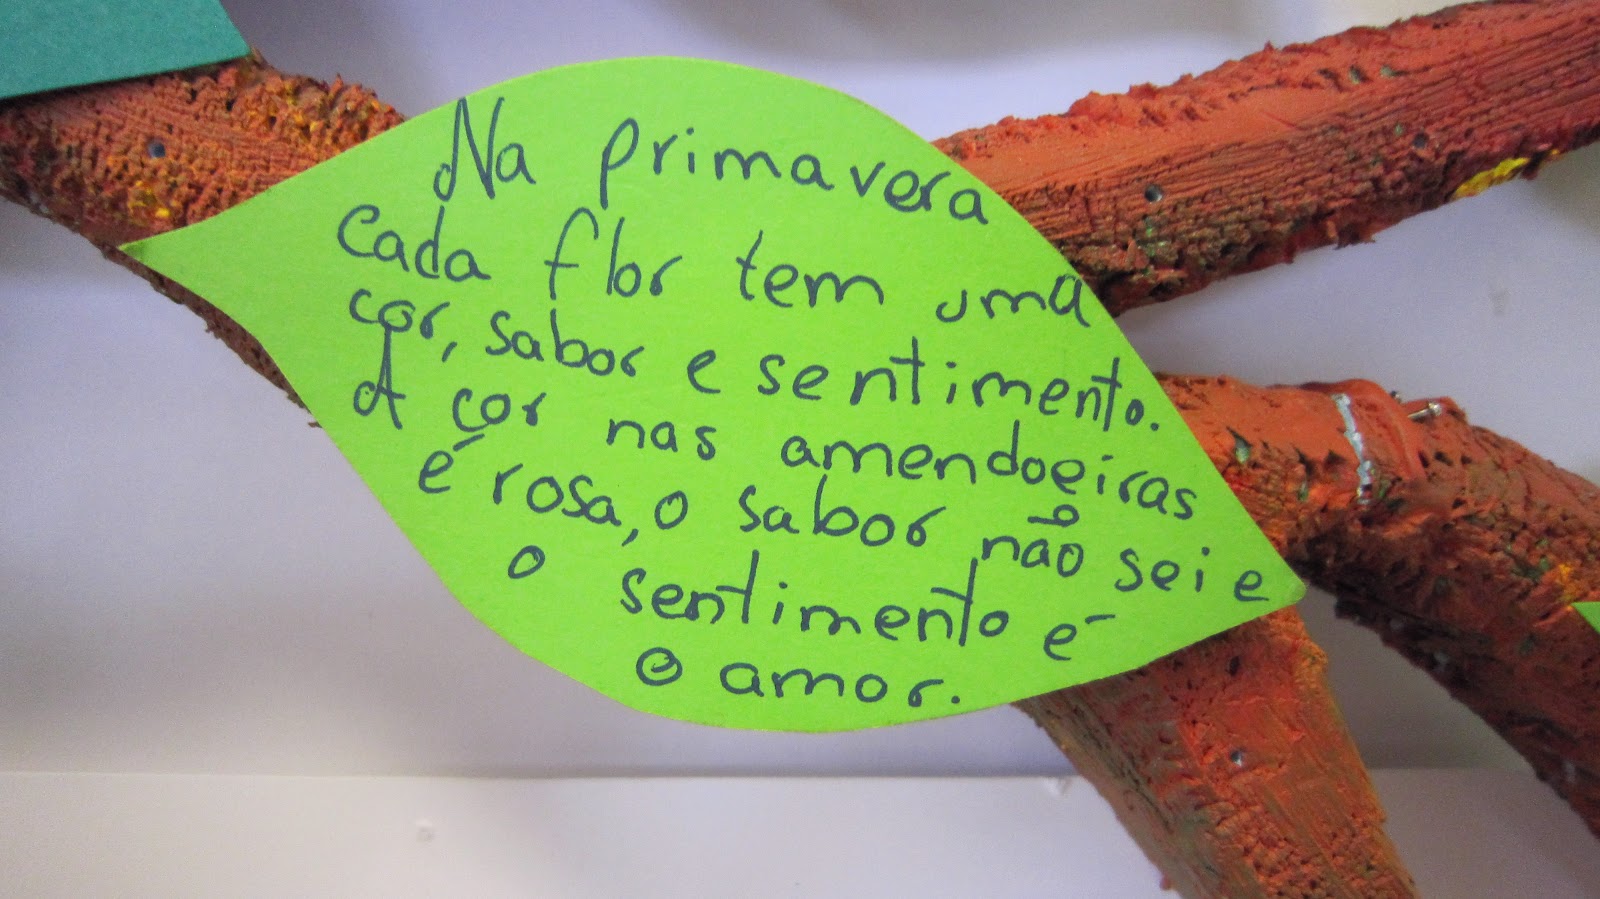 Na primavera
cada flor tem uma
cor, sabor e sentimento.
A cor nas amendoeiras
é rosa, o sabor não sei e
o sentimento é
o amor.